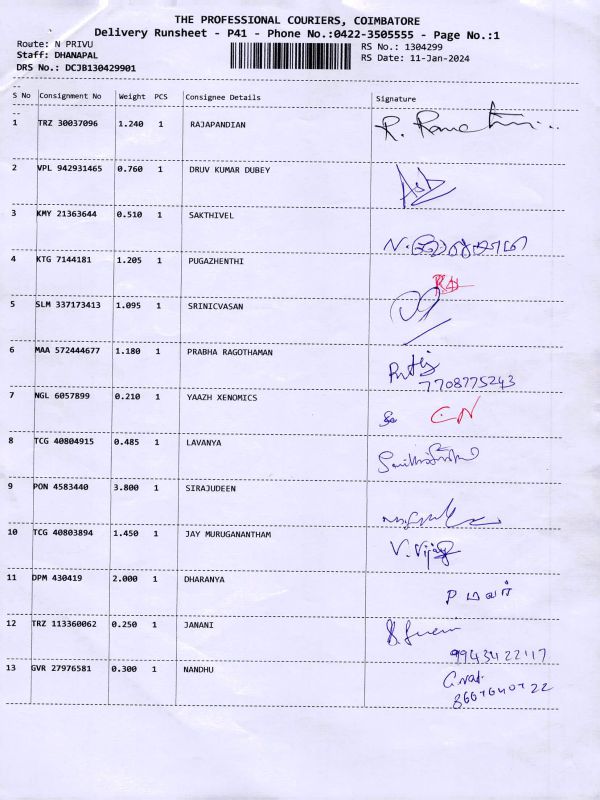 THE PROFESSIONAL COURIERS, COIMBATORE
Delivery Runsheet - P41 - Phone No.:0422-3505555 - Page No.:1
Route: N PRIVU
RS No.: 1304299
Staff: DHANAPAL
RS Date: 11-Jan-2024
DRS No.: DCJB130429901
S No Consignment No Weight PCS Consignee Details Signature
1 TRZ 30037096 1.240 1 RAJAPANDIAN
2 VPL 942931465 0.760 1 DRUV KUMAR DUBEY
3 KMY 21363644 0.510 1 SAKTHIVEL
4 KTG 7144181 1.205 1 PUGAZHENTHI
5 SLM 337173413 1.095 1 SRINICVASAN
6 MAA 572444677 1.180 1 PRABHA RAGOTHAMAN
7708775243
7 NGL 6057899 0.210 1 YAAZH XENOMICS
8 TCG 40804915 0.485 1 LAVANYA
9 PON 4583440 3.800 1 SIRAJUDEEN
10 TCG 40803894 1.450 1 JAY MURUGANANTHAM V.Vijay
11 DPM 430419 2.000 1 DHARANYA
12 TRZ 113360062 0.250 1 JANANI
13 GVR 27976581 0.300 1 NANDHU